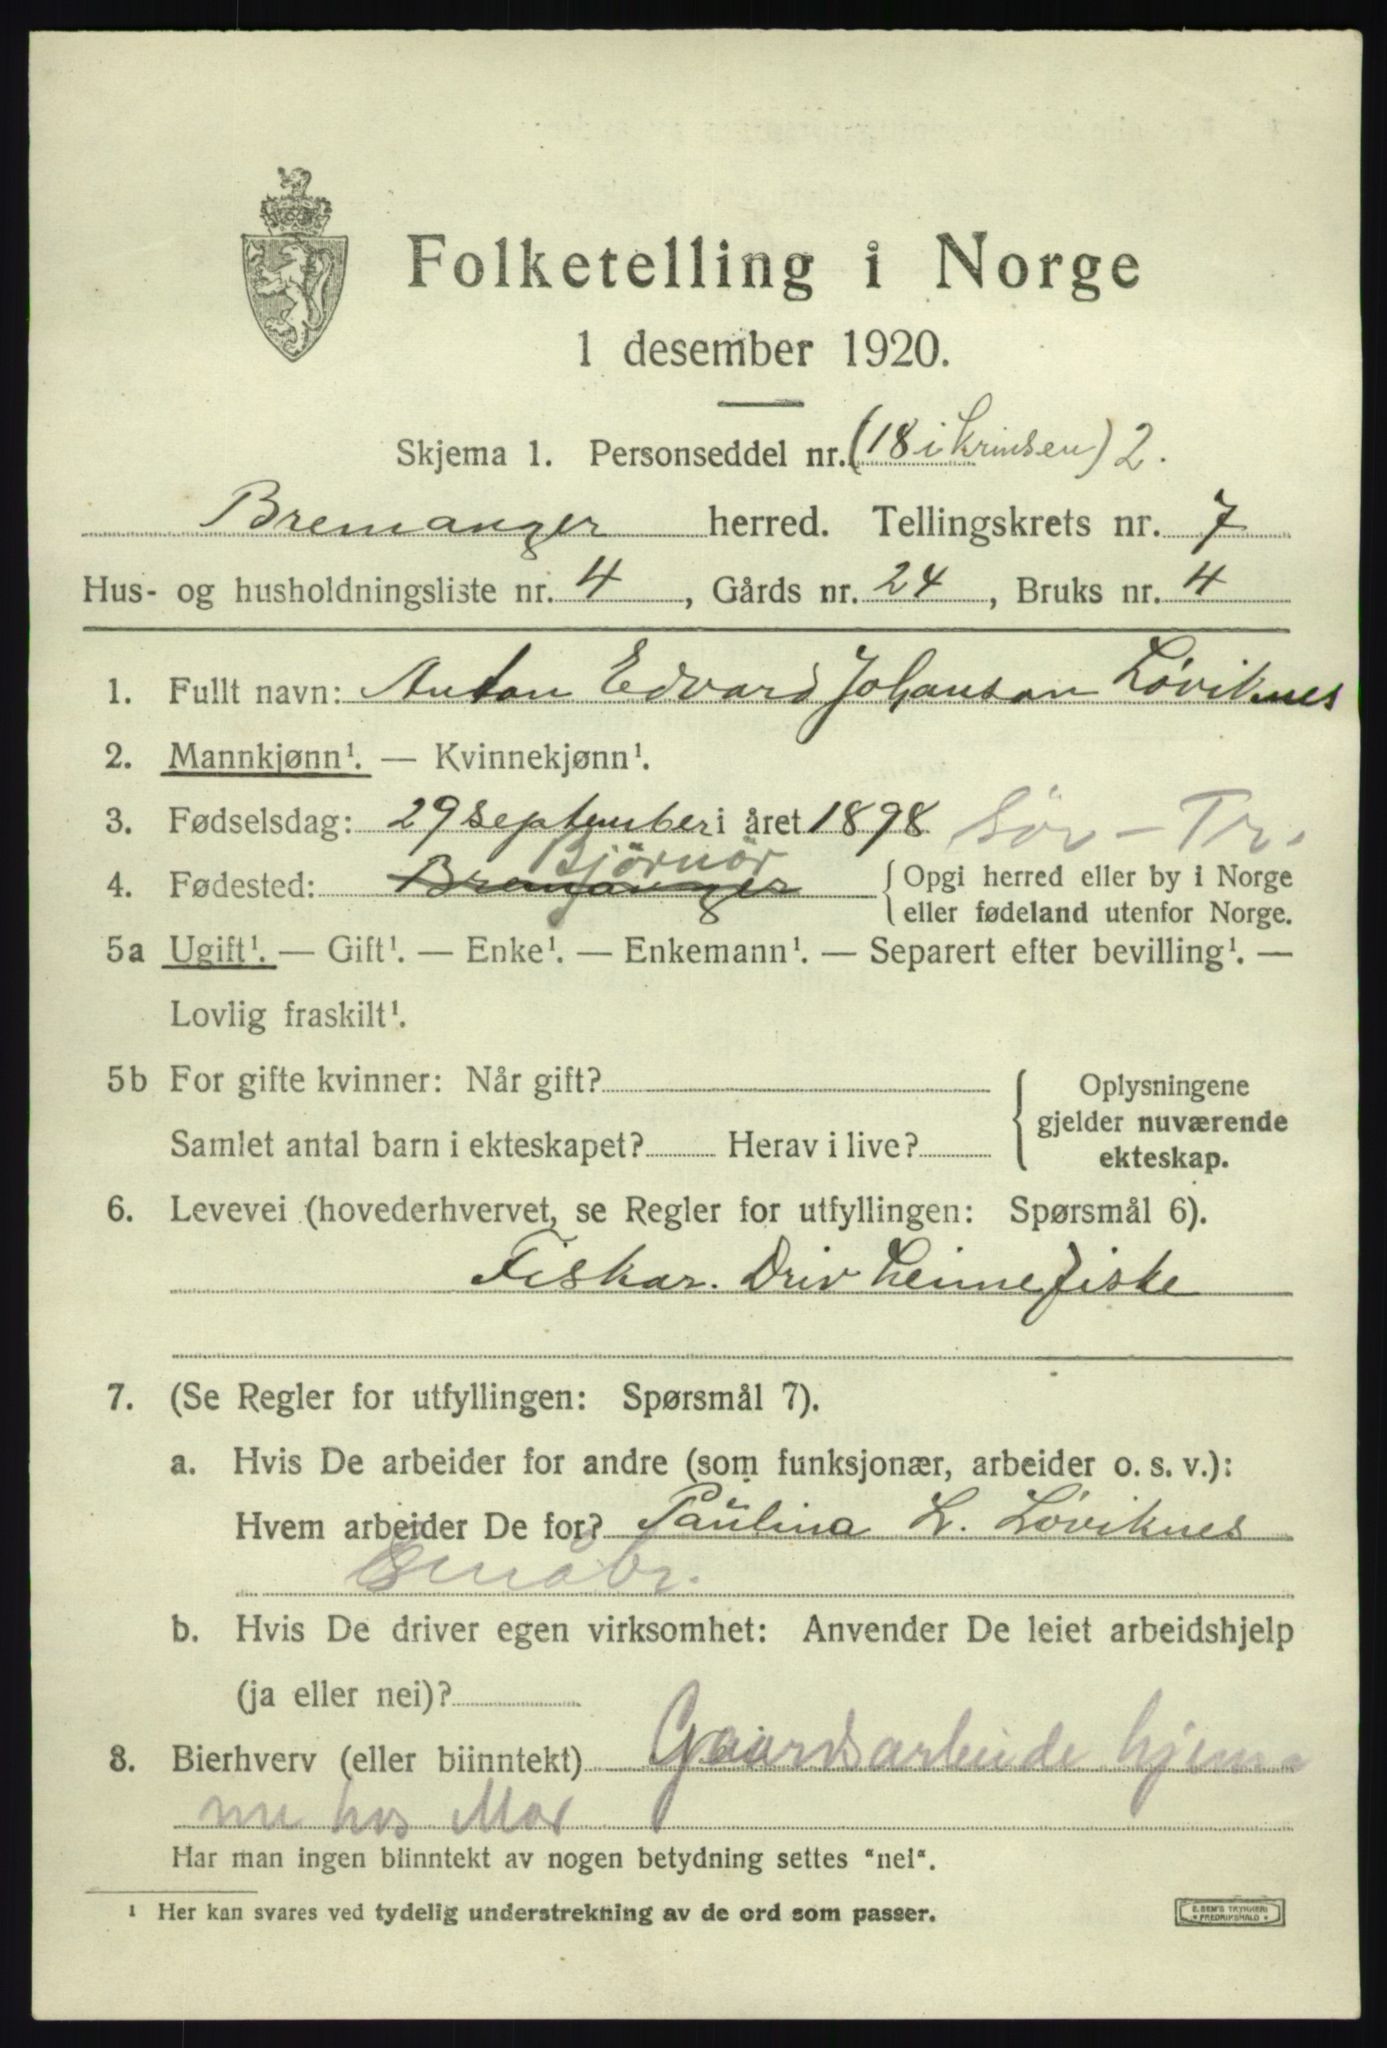 Folketelling i Norge
1 desember 1920.
Skjema 1. Personseddel nr. (18 i krinsen) 2.
Bremanger herred. Tellingskrets nr. 7
Hus- og husholdningsliste nr. 4, Gårds nr. 24, Bruks nr. 4
1. Fullt navn: Anton Edvard Johanson Løviknes
2. Mannkjønn¹. — Kvinnekjønn¹.
3. Fødselsdag: 29 september i året 1898 Sør-Tr.
Bjørnör
4. Fødested: Bremanger { Opgi herred eller by i Norge
eller fødeland utenfor Norge.
5a Ugift¹. — Gift¹. — Enke¹. — Enkemann¹. — Separert efter bevilling¹. —
Lovlig fraskilt¹.
5b For gifte kvinner: Når gift? Oplysningene
gjelder nuværende
Samlet antal barn i ekteskapet? Herav i live?
ekteskap.
6. Levevei (hovederhvervet, se Regler for utfyllingen: Spørsmål 6).
Fiskar. Driv heimefiske
7. (Se Regler for utfyllingen: Spørsmål 7).
a. Hvis De arbeider for andre (som funksjonær, arbeider o. s. v.):
Hvem arbeider De for? Paulina L. Løviknes
Småbr.
b. Hvis De driver egen virksomhet: Anvender De leiet arbeidshjelp
(ja eller nei)?
8. Bierhverv (eller biinntekt) Gaardsarbeide hjem-
me hos Mor
Har man ingen biinntekt av nogen betydning settes "nei".
¹ Her kan svares ved tydelig understrekning av de ord som passer.
E. SEM'S TRYKKERI
• FREDRIKSHALD •